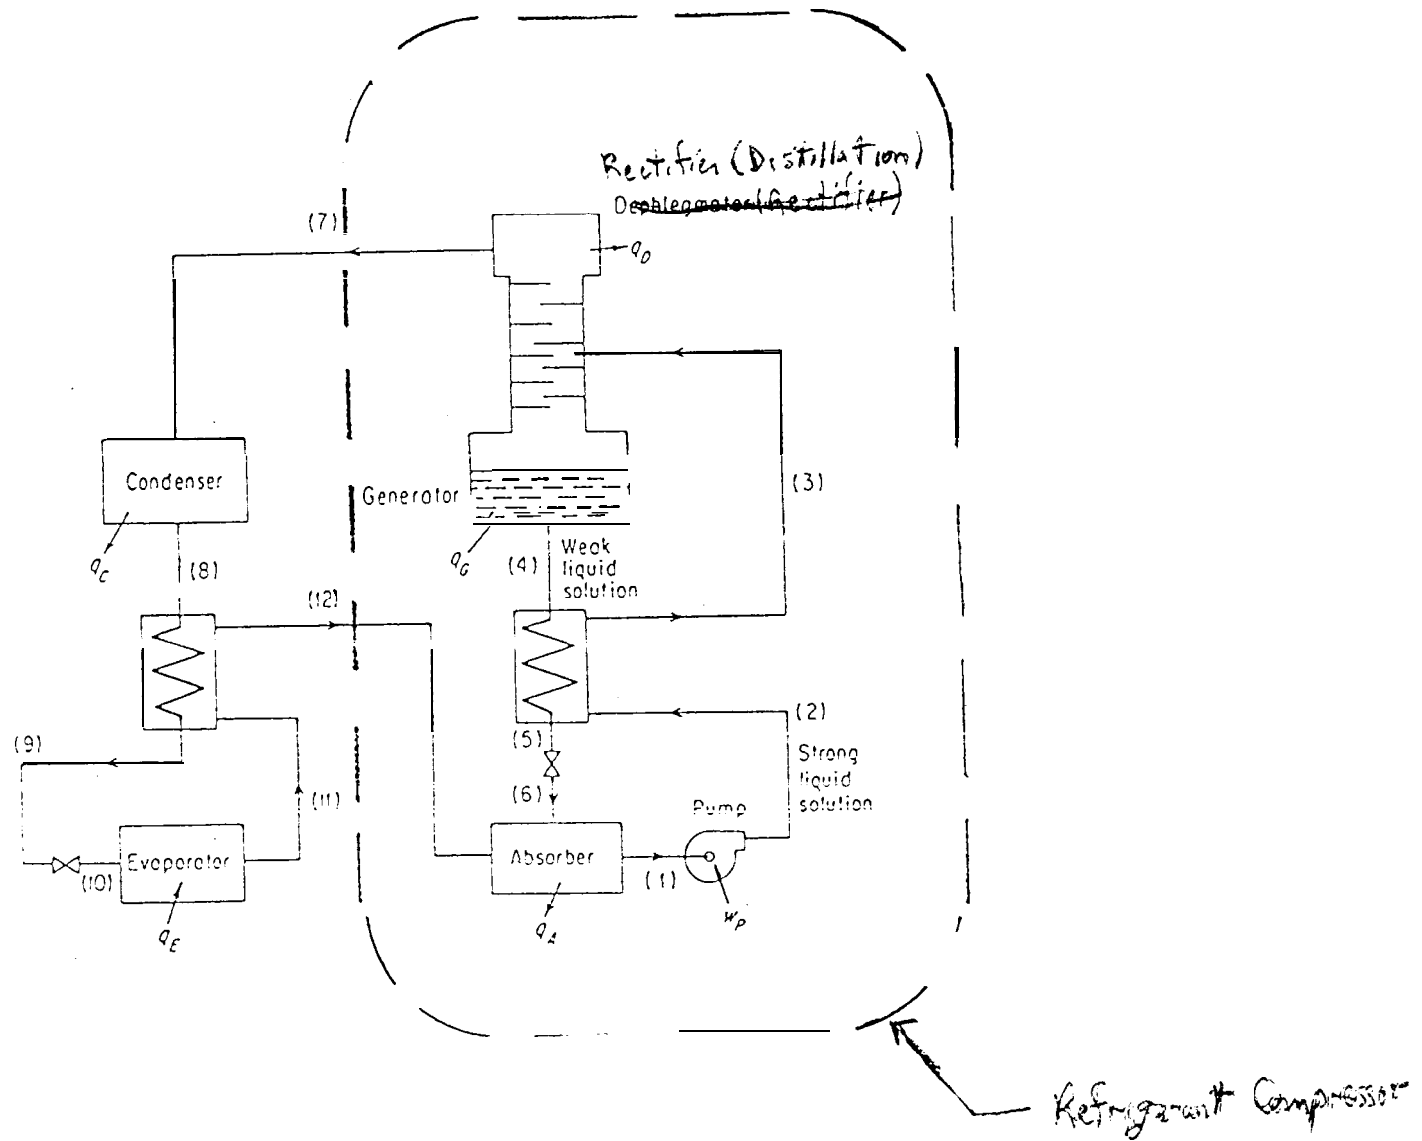 Rectifier (Distillation)
Dephlegmator (Rectifier)
(7)
q_D
Condenser
Generator
(3)
q_C
(8)
q_G
(4)
Weak
liquid
solution
(12)
(2)
(9)
(5)
Strong
liquid
solution
(11)
(6)
Pump
Evaporator
(10)
Absorber
(1)
q_E
q_A
w_P
Refrigerant Compressor